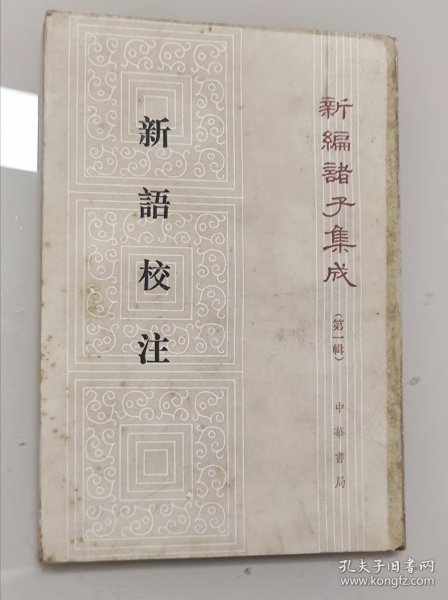 新編諸子集成
(第一輯)
中華書局
新語校注
孔夫子旧书网
www.kongfz.com